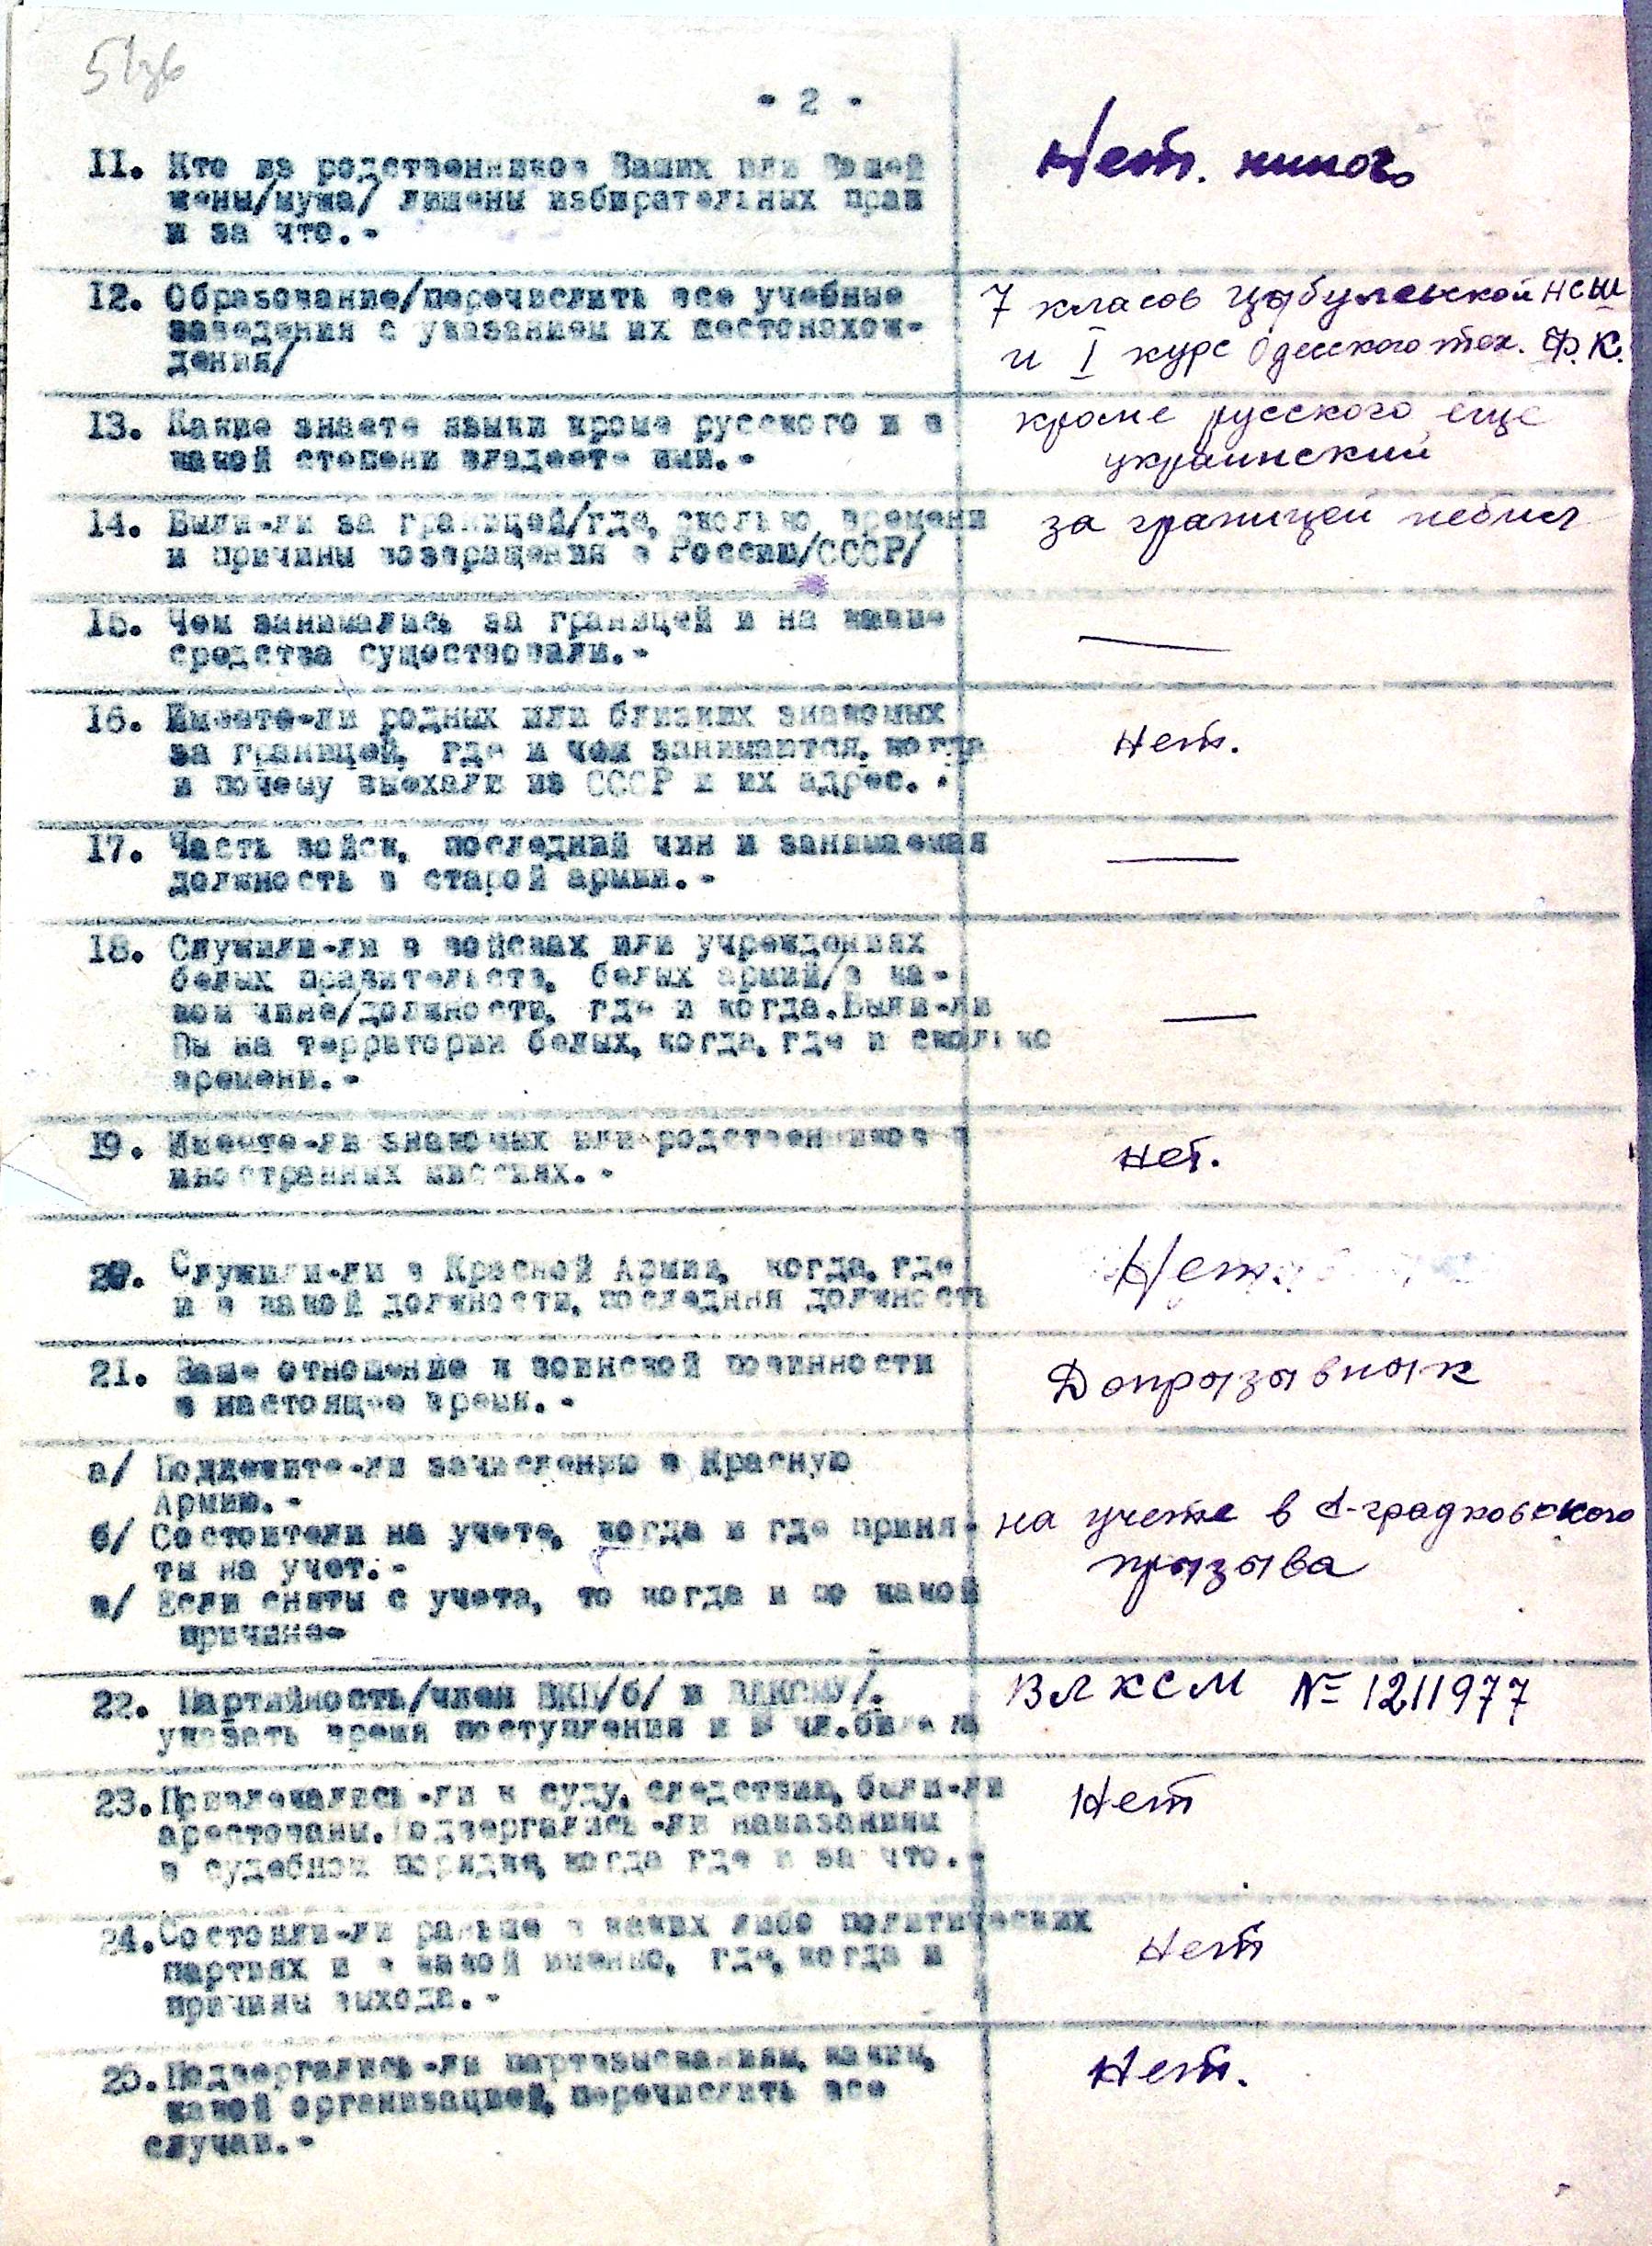 - 2 -
11. Кто из родственников Ваших или Вашей
жены/мужа/ лишены избирательных прав
и за что.-
Нет. никого
12. Образование/перечислить все учебные
заведения с указанием их местонахож-
дения/
7 класов Цыбулевской НСШ
и I курс Одесского тех. Ф.К.
13. Какие знаете языки кроме русского и в
какой степени владеете ими.-
кроме русского еще
украинский
14. Были-ли за границей/где, сколько времени
и причины возвращения в Россию/СССР/
за границей небыл
15. Чем занимались за границей и на какие
средства существовали.-
—
16. Имеете-ли родных или близких знакомых
за границей, где и чем занимаются, когда
и почему выехали из СССР и их адрес.-
Нет.
17. Часть войск, последний чин и занимаемая
должность в старой армии.-
—
18. Служили-ли в войсках или учреждениях
белых правительств, белых армий/в ка-
ком чине/должности, где и когда.Были-ли
Вы на территории белых, когда, где и сколько
времени.-
—
19. Имеете-ли знакомых или родственников в
иностранных миссиях.-
Нет.
20. Служили-ли в Красной Армии, когда, где
и в какой должности, последняя должность
Нет.
21. Ваше отношение к воинской повинности
в настоящее время.-
Допрызывнык
а/ Подлежите-ли зачислению в Красную
Армию.-
б/ Состоители на учете, когда и где приня-
ты на учет.-
в/ Если сняты с учета, то когда и по какой
причине-
на учете в
прызыва
22. Партийность/член ВКП/б/ и ЛКСМУ/.
указать время поступления и № чл.билета
ВЛКСМ № 1211977
23. Привлекались-ли к суду, следствию, были-ли
арестованы.Подвергались-ли наказаниям
в судебном порядке, когда где и за что.-
Нет
24. Состояли-ли раньше в каких либо политических
партиях и в какой именно, где, когда и
причины выхода.-
Нет
25. Подвергались-ли партвзысканиям, каким,
какой организацией, перечислить все
случаи.-
Нет.